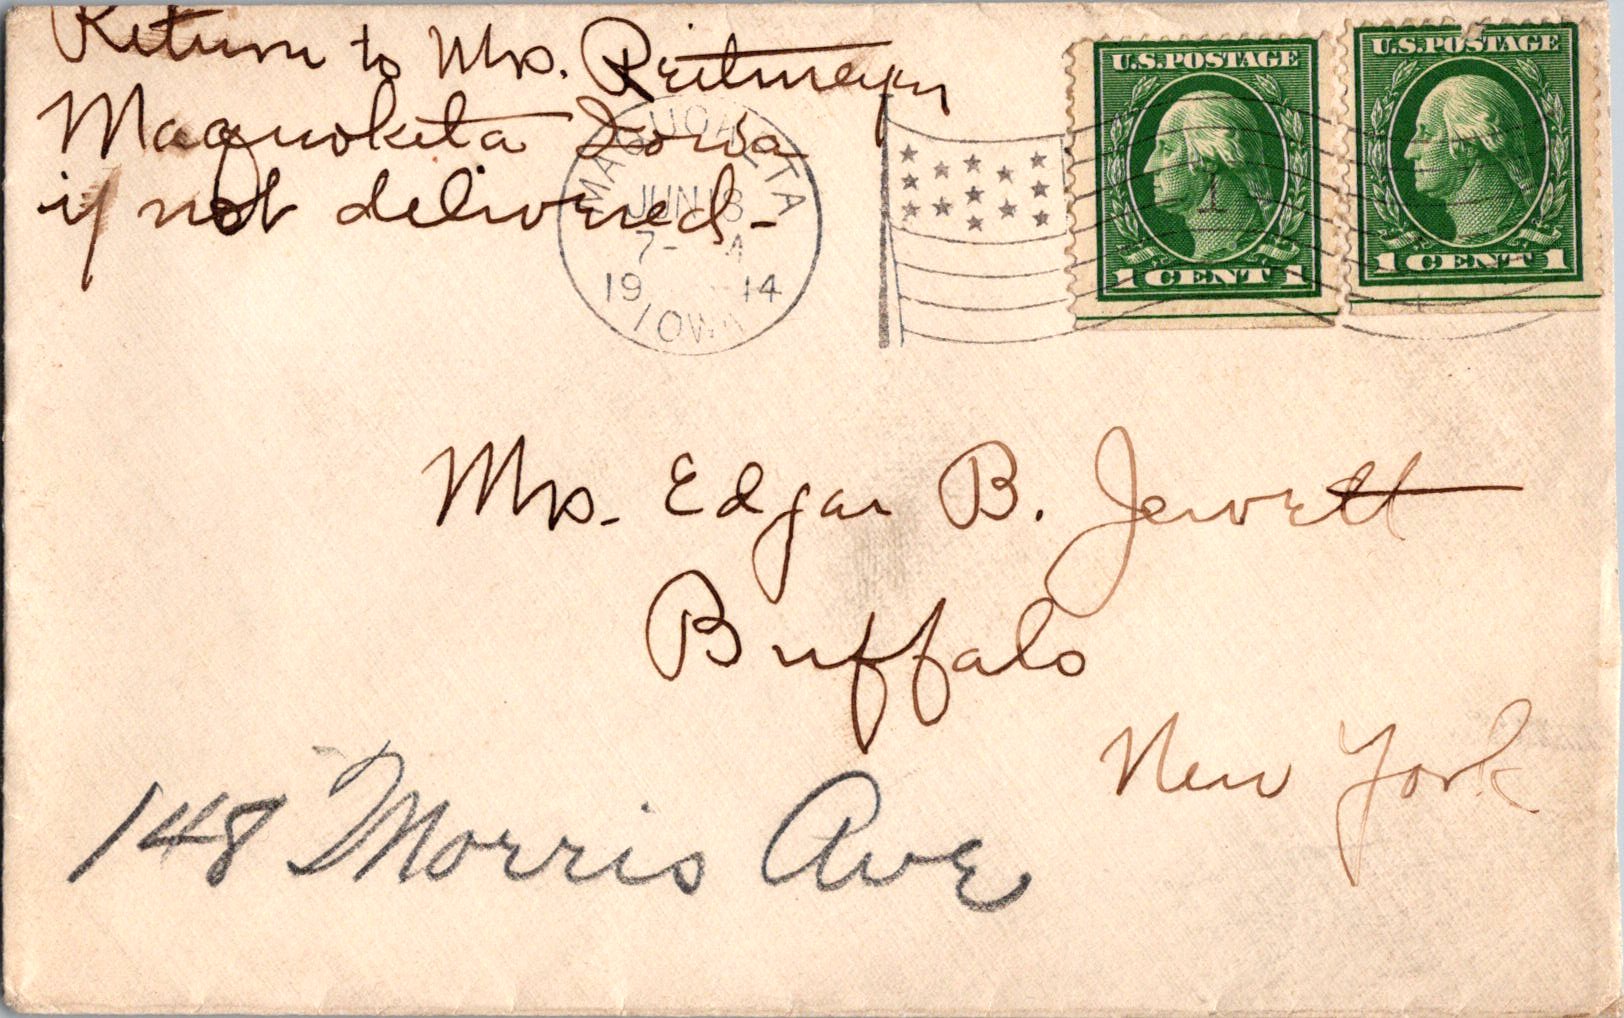 Return to Mrs. Reitmeyer
Maquoketa Iowa
if not delivered-
MAQUOKETA
JUN 13
7- A
19 14
IOWA
U.S.POSTAGE
1 CENT 1
U.S.POSTAGE
1 CENT 1
Mrs. Edgar B. Jewett
Buffalo
New York
148 Morris Ave